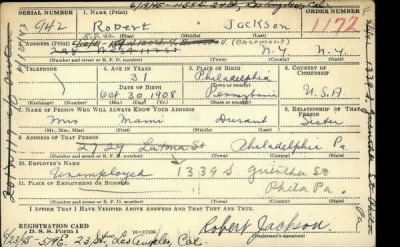 SERIAL NUMBER 1. NAME (Print) ORDER NUMBER
942 Robert Jackson 1172
(First) (Middle) (Last)
2. ADDRESS (Print) (Basement) N.Y. N.Y.
(Number and street or R. F. D. number) (Town) (County) (State)
3. TELEPHONE 4. AGE IN YEARS 5. PLACE OF BIRTH 6. COUNTRY OF CITIZENSHIP
31 Philadelphia
DATE OF BIRTH (Town or county)
Oct 30 1908 Pennsylvania U.S.A
(Exchange) (Number) (Mo.) (Day) (Yr.) (State or country)
7. NAME OF PERSON WHO WILL ALWAYS KNOW YOUR ADDRESS 8. RELATIONSHIP OF THAT PERSON
Mrs Mami Durant Sister
(Mr., Mrs., Miss) (First) (Middle) (Last)
9. ADDRESS OF THAT PERSON
2729 Latona St Philadelphia Pa.
(Number and street or R. F. D. number) (Town) (County) (State)
10. EMPLOYER'S NAME
Unemployed 1339 S. St
11. PLACE OF EMPLOYMENT OR BUSINESS Phila Pa.
(Number and street or R. F. D. number) (Town) (County) (State)
I AFFIRM THAT I HAVE VERIFIED ABOVE ANSWERS AND THAT THEY ARE TRUE.
REGISTRATION CARD
D. S. S. Form 1 Robert Jackson
(Registrant's signature)
23 St, Los Angeles Cal.